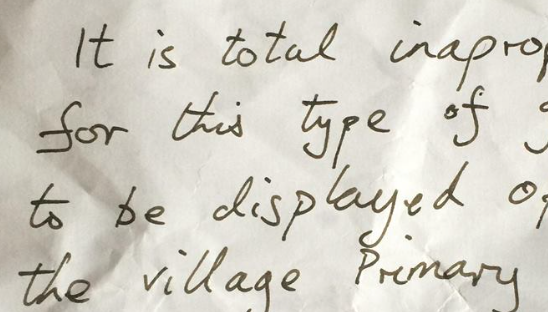 It is total inaprop
for this type of g
to be displayed op
the village Primary